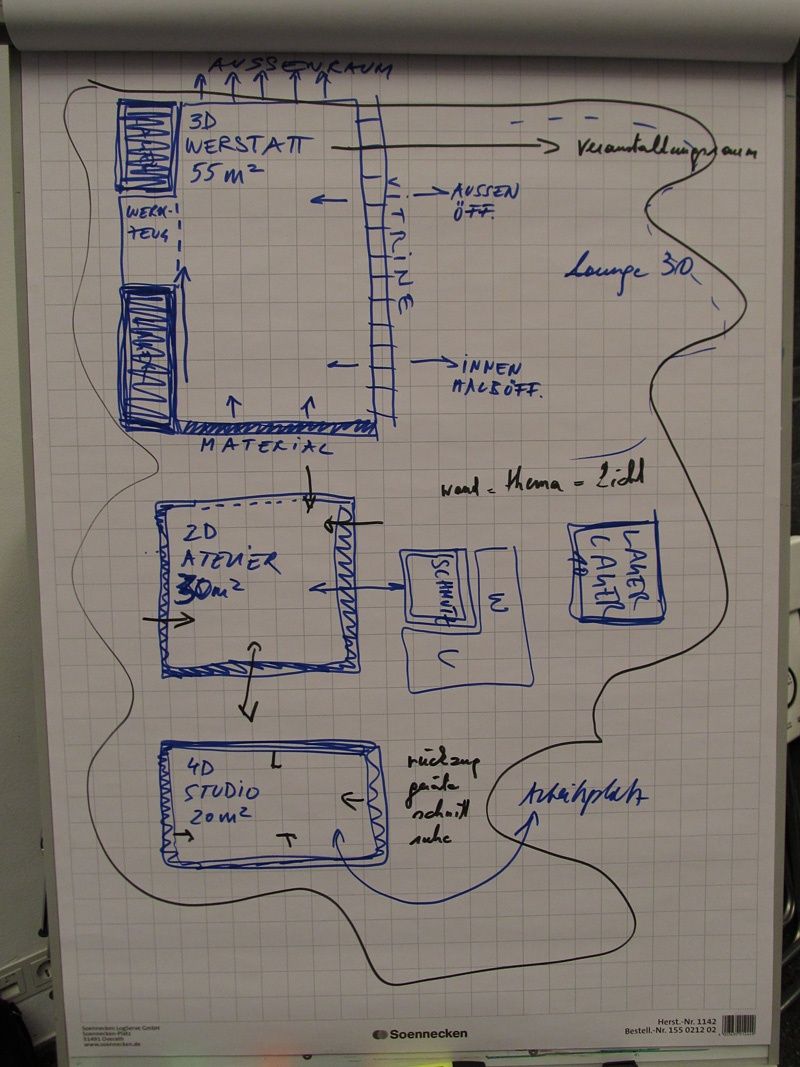 AUSSENRAUM
3D
WERSTATT
55 m²
Veranstaltungsraum
WERK-
ZEUG
VITRINE
AUSSEN
ÖFF.
Lounge 3D
INNEN
HALBÖFF.
MATERIAL
wand = thema = Licht
2D
ATELIER
30m²
SCHMUTZ
W
U
LAGER
LAGER
4D
STUDIO
20m²
rückzug
geräte
schnitt
ruhe
Arbeitsplatz
Soennecken LogServe GmbH
Soennecken-Platz
51491 Overath
www.soennecken.de
Soennecken
Herst.-Nr. 1142
Bestell.-Nr. 155 0212 02